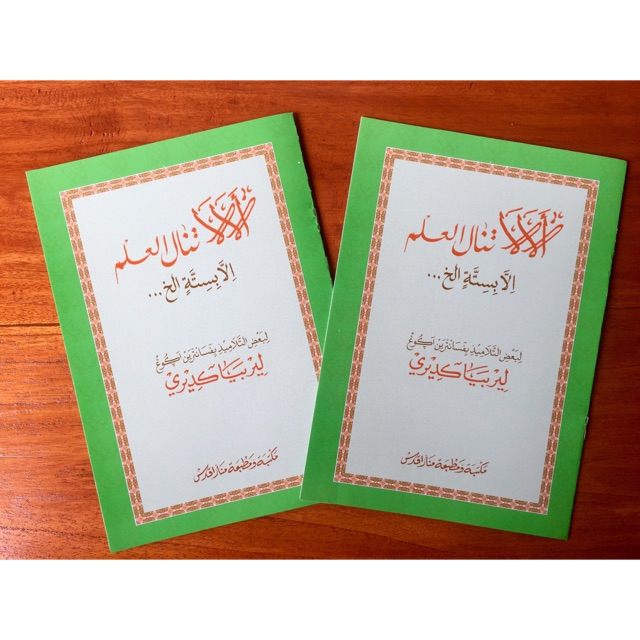 ألَالَا تنال العلم
إلَّا بِسِتَّةٍ الخ...
لبَعْضِ التَّلَامِيذِ بفسانترين كوغ
ليربيا كديري
مكتبة ومطبعة منارا قدس
ألَالَا تنال العلم
إلَّا بِسِتَّةٍ الخ...
لبَعْضِ التَّلَامِيذِ بفسانترين كوغ
ليربيا كديري
مكتبة ومطبعة منارا قدس